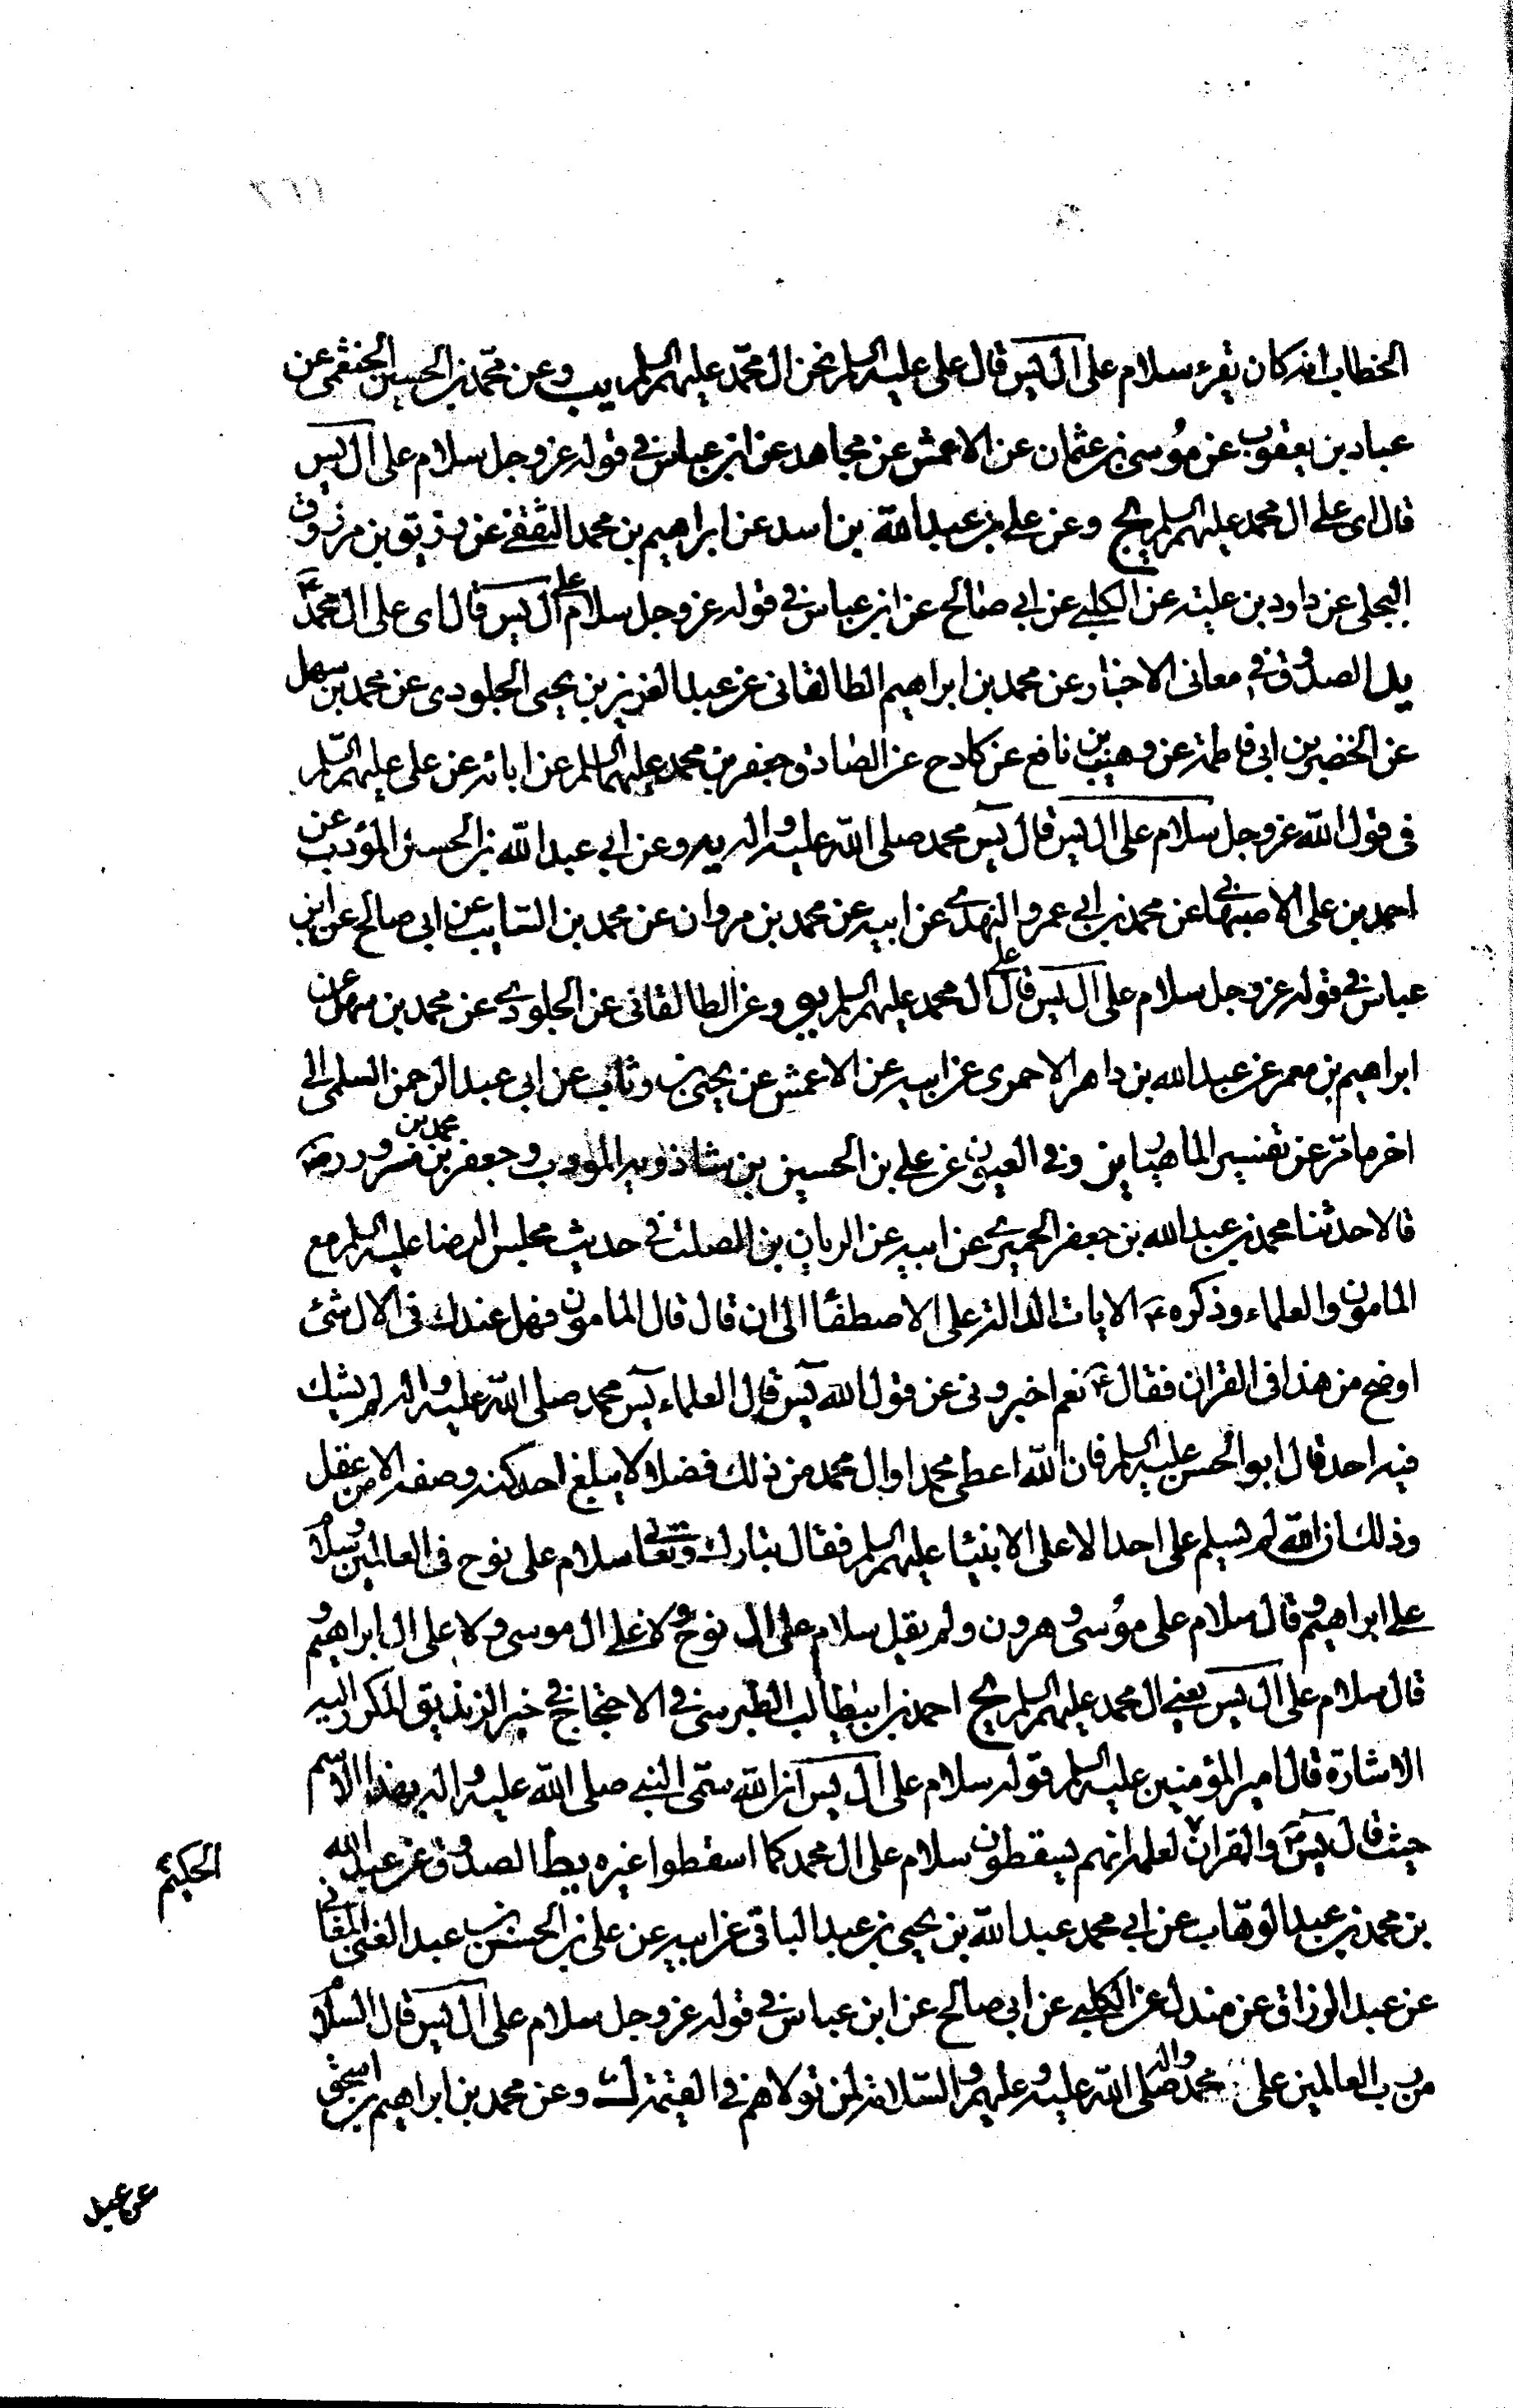 الخطاب انه كان يقرء سلام على ال يس قال على عليه السلم نحن ال محمّد عليهم السلم يب وعن محمّد بن الحسين الخثعمى عن
عباد بن يعقوب عن موُسى بن عثمان عن الاعمش عن مجاهد عن ابن عباس فى قوله عز وجل سلام على ال يس
قال اى على ال محمد عليهم السلم يج وعن على بن عبد الله بن اسد عن ابراهيم بن محمد الثقفى عن رزيق بن مرزوق
البجلى عن داود بن علية عن الكلبى عن ابى صالح عن ابن عباس فى قوله عز وجل سلام على ال يس قال اى على ال محمد
يد الصدوق فى معانى الاخبار عن محمد بن ابراهيم الطالقانى عن عبد العزيز بن يحيى الجلودى عن محمد بن سهل
عن الخضر بن ابى فاطمة عن وهيب بن نافع عن كادح عن الصادق جعفر بن محمد عليهما السلم عن ابائه عن على عليهم السّلم
فى قول الله عز وجل سلام على ال يس قال يس محمد صلى الله عليه واله يه وعن ابى عبد الله بن الحسن المؤدب عن
احمد بن على الاصبهانى عن محمد بن ابى عمرو النهدى عن ابيه عن محمد بن مروان عن محمد بن السايب عن ابى صالح عن ابن
عباس فى قوله عز وجل سلام على ال يس قال على ال محمد عليهم السلم يو وعن الطالقانى عن الجلودى عن محمد بن سهل عن
ابراهيم بن معمر عن عبد الله بن داهر الاحمرى عن ابيه عن الاعمش عن يحيى بن وثاب عن ابى عبد الرحمن السلمى الى
اخر ما مرّ عن تفسير الماهيار يز وفى العيون عن على بن الحسين بن شاذويه المؤدب وجعفر بن محمد بن مسرور رضه
قالا حدثنا محمد بن عبد الله بن جعفر الحميرى عن ابيه عن الريان بن الصلت فى حديث مجلس الرضا عليه السلم مع
المامون والعلماء وذكره ع الايات الدالة على الاصطفا الى ان قال قال المامون فهل عندك فى الال شئ
اوضح من هذا فى القران فقال ع نعم اخبرونى عن قول الله يس قال العلماء يس محمد صلى الله عليه واله لم يشك
فيه احد قال ابو الحسن عليه السلم فان الله اعطى محمدا وال محمد من ذلك فضلا لا يبلغ احد كنه وصفه الا من عقل
وذلك ان الله لم يسلم على احد الا على الانبيا عليهم السلم فقال تبارك وتعالى سلام على نوح فى العالمين وسلام
على ابراهيم وقال سلام على موُسى وهرون ولم يقل سلام على ال نوح ولا على ال موسى ولا على ال ابراهيم و
قال سلام على ال يس يعنى ال محمد عليهم السلم يح احمد بن ابيطالب الطبرسى فى الاحتجاج فى خبر الزنديق المكرر اليه
الاشارة قال امير المؤمنين عليه السلم قوله سلام على ال يس ان الله سمّى النبى صلى الله عليه واله بهذا الاسم
حيث قال يس والقران لعلمه انهم يسقطون سلام على ال محمد كما اسقطوا غيره يط الصدوق عن عبد الله
الحكيم
بن محمد بن عبد الوهّاب عن ابى محمد عبد الله بن يحيى بن عبد الباقى عن ابيه عن على بن الحسن بن عبد الغنى المغانى
عن عبد الرزاق عن مندل عن الكلبى عن ابى صالح عن ابن عباس فى قوله عز وجل سلام على ال يس قال السلام
من رب العالمين على محمد واله صلى الله عليه وعليهم والسّلامة لمن تولاهم فى القيمة ك وعن محمد بن ابراهيم بن اسحق
عن عبد